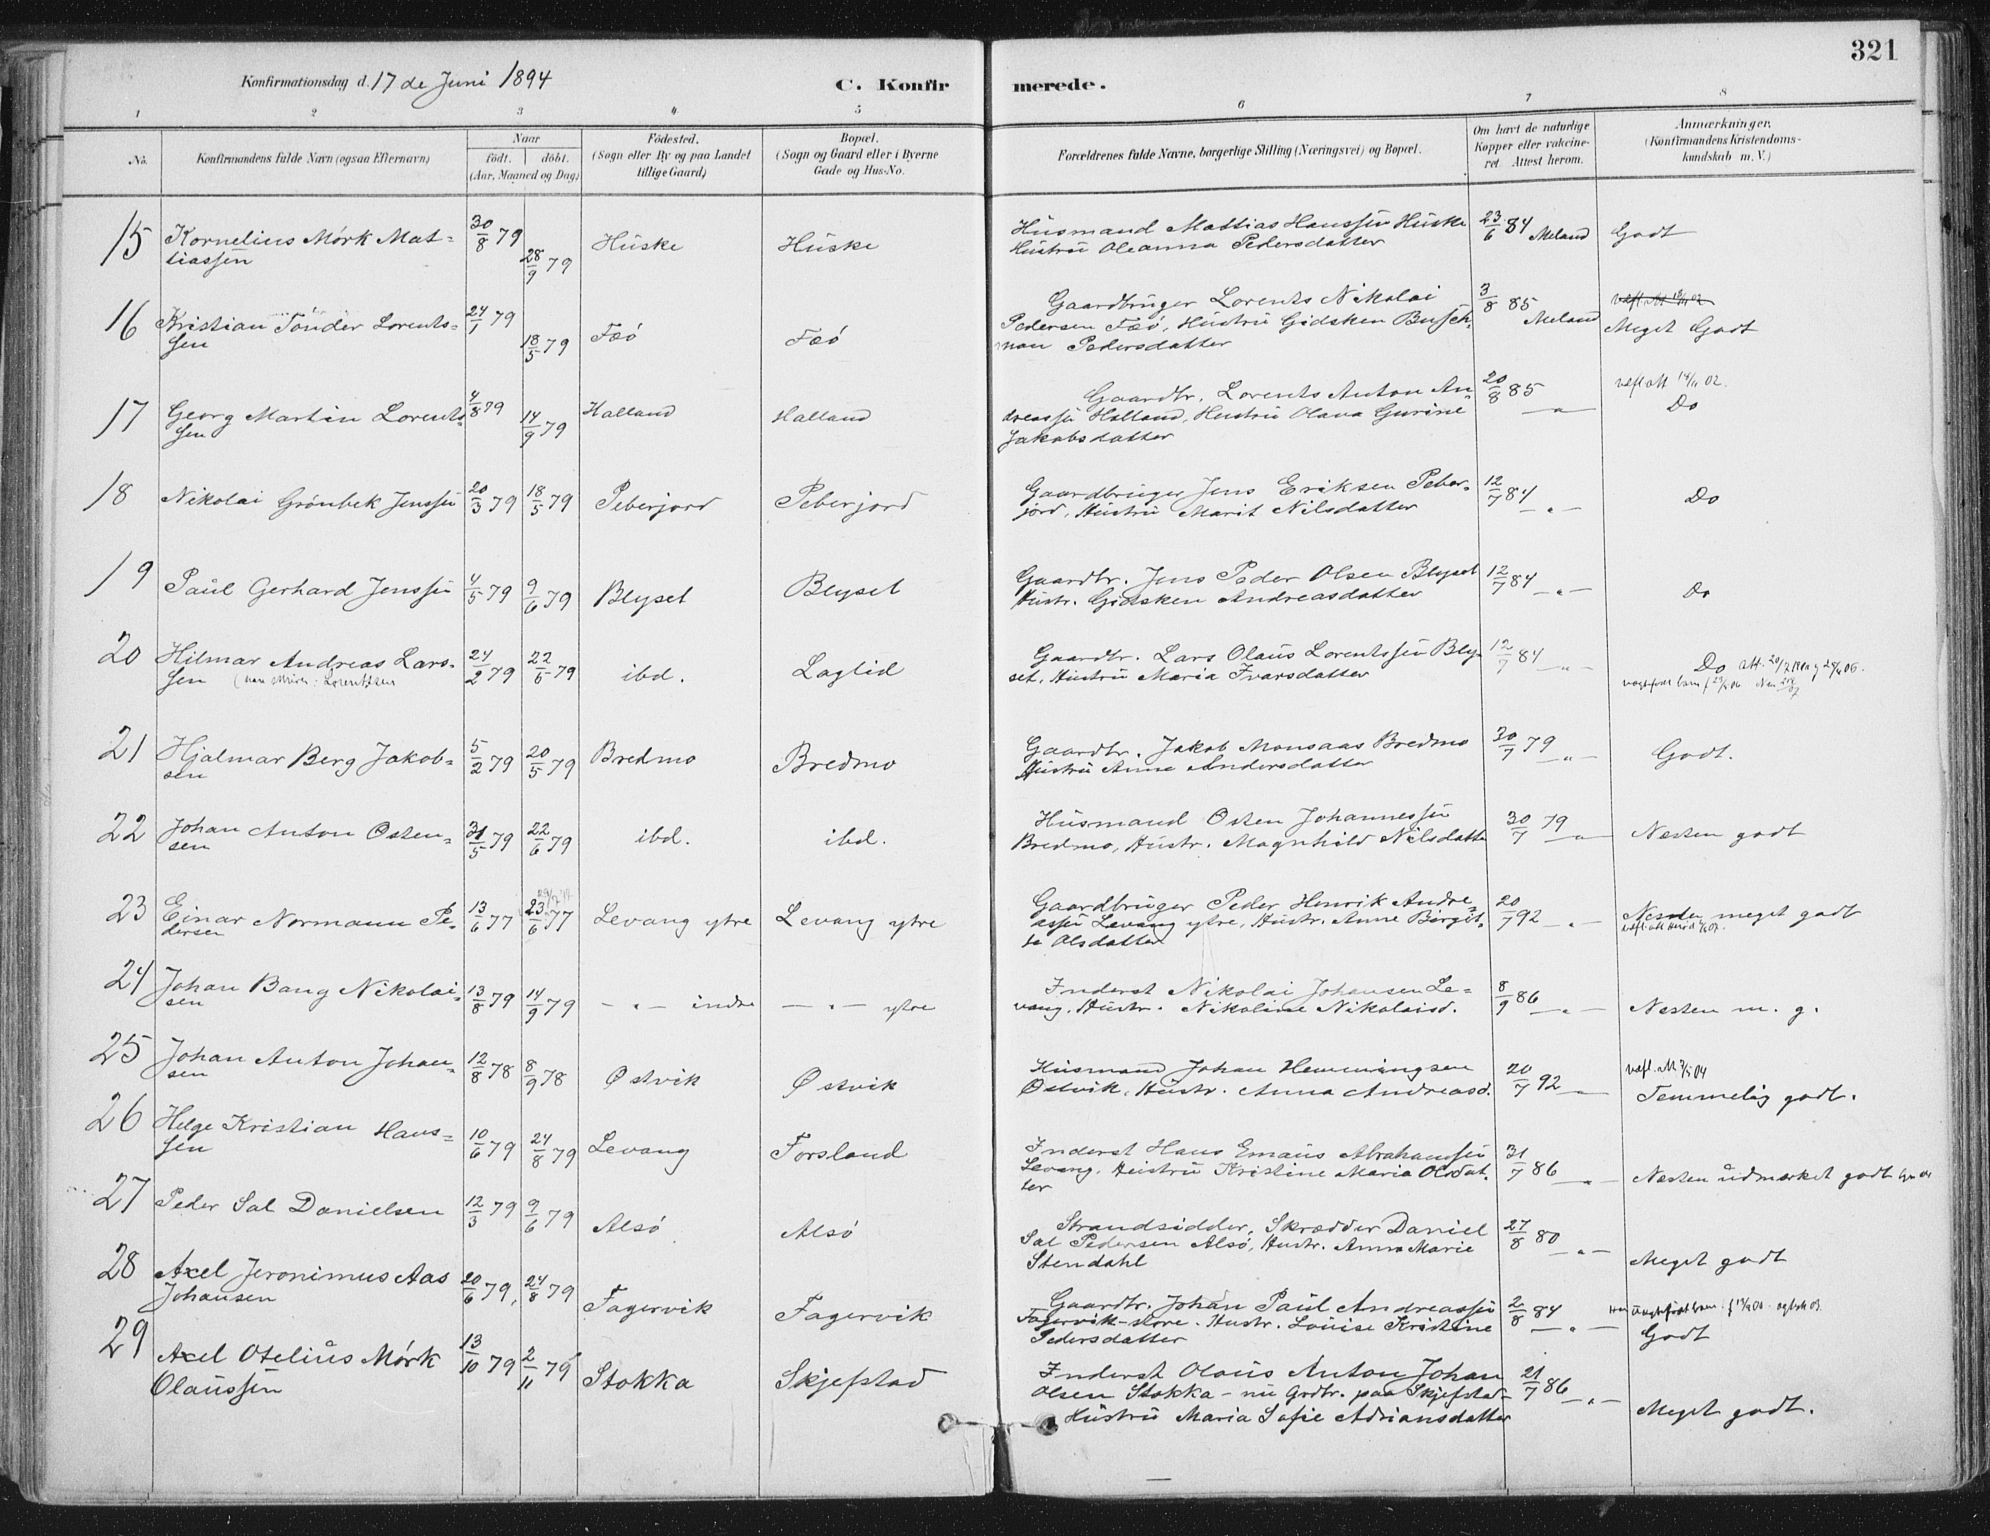 321
Konfirmationsdag d. 17 de Juni 1894
C. Konfirmerede.
1 2 3 4 5 6 7 8
No.
Konfirmandens fulde Navn (ogsaa Efternavn)
Naar
födt. döbt.
(Aar, Maaned og Dag)
Födested.
(Sogn eller By og paa Landet
tillige Gaard)
Bopæl.
(Sogn og Gaard eller i Byerne
Gade og Hus-No.
Forældrenes fulde Navne, borgerlige Stilling (Næringsvei) og Bopæl.
Om havt de naturlige
Kopper eller vakcine-
ret Attest herom.
Anmærkninger.
(Konfirmandens Kristendoms-
kundskab m. V.)
15 Kornelius Mörk Mat-
tiassen
30/8 79 28/9 79 Huske Huske
Husmand Mattias Hanssen Huske
Hustru Oleanna Pedersdatter
23/6 84 Meland Godt
16 Kristian Tönder Lorents-
sen
24/1 79 18/5 79 Fæö Fæö
Gaardbruger Lorents Nikolai
Pedersen Fæö, Hustru Gidsken Busch-
man Pedersdatter
3/8 85 Meland
Meget Godt
17 Georg Martin Lorents-
sen
4/8 79 14/9 79 Halland Halland
Gaardbr. Lorents Anton An-
dreassen Halland, Hustru Olava Gurine
Jakobsdatter
20/8 85 — " —
vafl att 14/11 02.
Do
18 Nikolai Grönbek Jenssen
20/3 79 18/5 79 Peberjord Peberjord
Gaardbruger Jens Eriksen Peber-
jord, Hustru Marit Nilsdatter
12/7 84 — " — Do
19 Paul Gerhard Jenssen
4/5 79 9/6 79 Blyset Blyset
Gaardbr. Jens Peder Olsen Blyset
Hustr. Gidsken Andreasdatter
12/7 84 — " — Do
20 Hilmar Andreas Lars-
sen
24/2 79 22/6 79 ibd. Laglid
Gaardbr. Lars Olaus Lorentssen Bly-
set, Hustru Maria Ivarsdatter
12/7 84 — " — Do
21 Hjalmar Berg Jakob-
sen
5/2 79 20/5 79 Bredmo Bredmo
Gaardbr. Jakob Monsaas Bredmo
Hustru Anne Andersdatter
30/7 79 — " — Godt.
22 Johan Anton Östen-
sen
31/5 79 22/6 79 ibd. ibd.
Husmand Östen Johannessen
Bredmo, Hustr. Magnhild Nilsdatter
30/7 79 — " — Nesten godt
23 Einar Normann Pe-
dersen
13/6 77 23/6 77 Levang ytre Levang ytre
Gaardbruger Peder Henrik Andre-
assen Levang ytre, Hustr. Anne Birgit-
te Olsdatter
20/7 92 — " — Nesten meget godt
24 Johan Bang Nikolai-
sen
13/8 79 14/9 79 — " — indre — " — ytre
Inderst Nikolai Johansen Le-
vang, Hustr. Nikoline Nikolaisd.
8/9 86 — " — Nesten m. g.
25 Johan Anton Johan-
sen
12/8 78 8/9 78 Östvik Östvik
Husmand Johan Hemmingsen
Östvik, Hustr. Anna Andreasd.
20/7 92 — " —
Temmelig godt.
26 Helge Kristian Hans-
sen
10/6 79 24/8 79 Levang Forsland
Inderst Hans Emaus Abrahamsen
Levang, Hustru Kristine Maria Olsdat-
ter
31/7 86 — " — Nesten udmærket godt
27 Peder Sal Danielsen
12/3 79 9/6 79 Alsö Alsö
Strandsidder, Skrædder Daniel
Sal Pedersen Alsö, Hustr. Anna Marie
Stendahl
27/8 80 — " — Meget godt
28 Axel Jeronimus Aas
Johansen
20/6 79, 24/8 79 Fagervik Fagervik
Gaardbr. Johan Paul Andreassen
Fagervik-store. Hustr. Louise Kristine
Pedersdatter
2/8 84 — " —
Godt
29 Axel Otelius Mörk
Olaussen
13/10 79 2/11 79 Stokka Skjefstad
Inderst Olaus Anton Johan
Olsen Stokka - nu Grdbr. paa Skjefstad -
Hustru Maria Sofie Adriansdatter
21/7 86 — " — Meget godt.